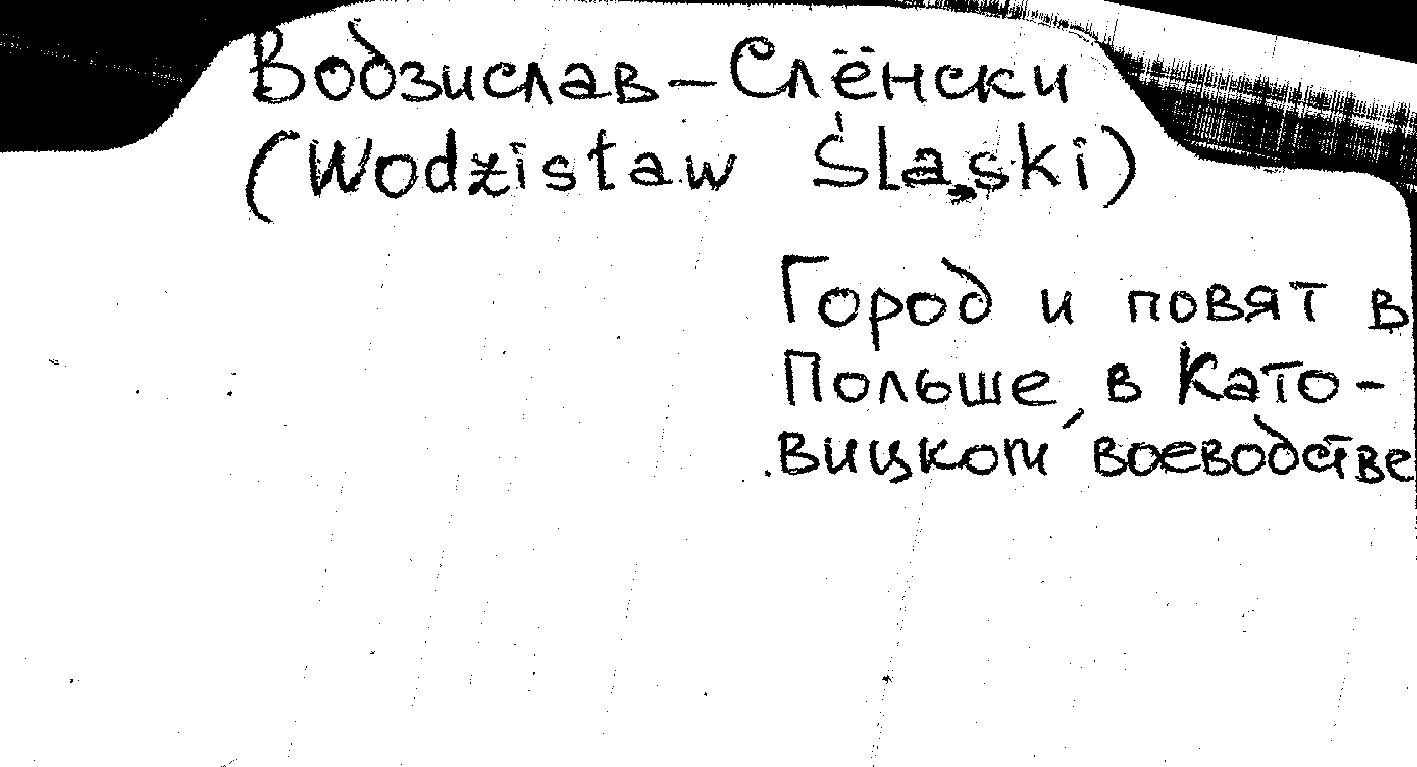 Водзислав–Слёнски
(Wodzisław Śląski)
Город и повят в
Польше, в Като-
вицком воеводстве